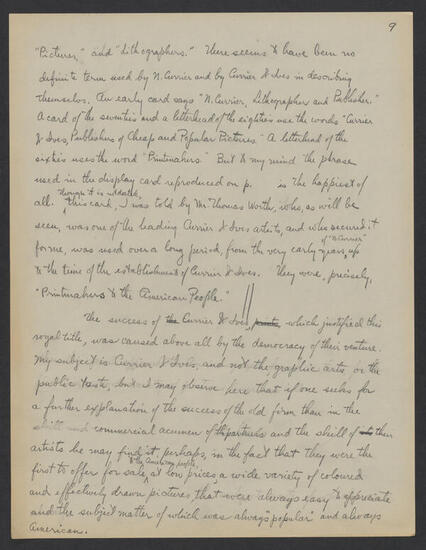 9
"Pictures," and "Lithographers." There seems to have been no
definite term used by N. Currier and by Currier & Ives in describing
themselves. An early card says "N. Currier, Lithographer and Publisher."
A card of the seventies and a letterhead of the eighties use the words "Currier
& Ives, Publishers of Cheap and Popular Pictures." A letterhead of the
sixties uses the word "Printmakers." But to my mind the phrase
used in the display card reproduced on p. is the happiest of
though it is undated,
all. this card, I was told by Mr. Thomas Worth, who, as will be
seen, was one of the leading Currier & Ives artists, and who secured it
of "N. Currier"
for me, was used over a long period, from the very early years, up
to the time of the establishment of Currier & Ives. They were, precisely,
"Printmakers to the American People."
The success of the Currier & Ives, prints which justified this
royal title, was caused above all by the democracy of their venture.
My subject is Currier & Ives, and not the graphic arts or the
public taste, but I may observe here that if one seeks for
a further explanation of the success of the old firm than in the
skill and commercial acumen of the partners and the skill of their
artists he may find it, perhaps, in the fact that they were the
to the American people,
first to offer for sale, at low prices, a wide variety of coloured
and effectively drawn pictures, that were always easy to appreciate
and the subject matter of which was always "popular" and always
American.